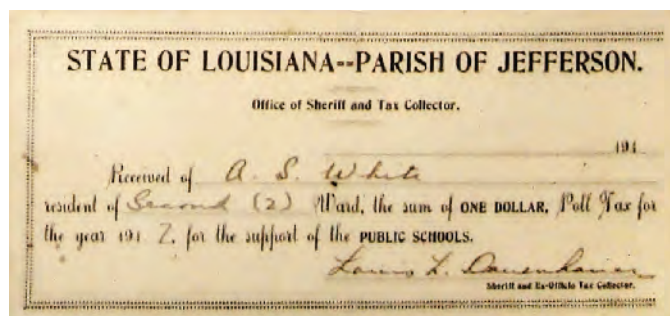 STATE OF LOUISIANA--PARISH OF JEFFERSON.
Office of Sheriff and Tax Collector.
191
Received of A. S. White
resident of Second (2) Ward, the sum of ONE DOLLAR, Poll Tax for
the year 191 2, for the support of the PUBLIC SCHOOLS.
Louis L.
Sheriff and Ex-Officio Tax Collector.